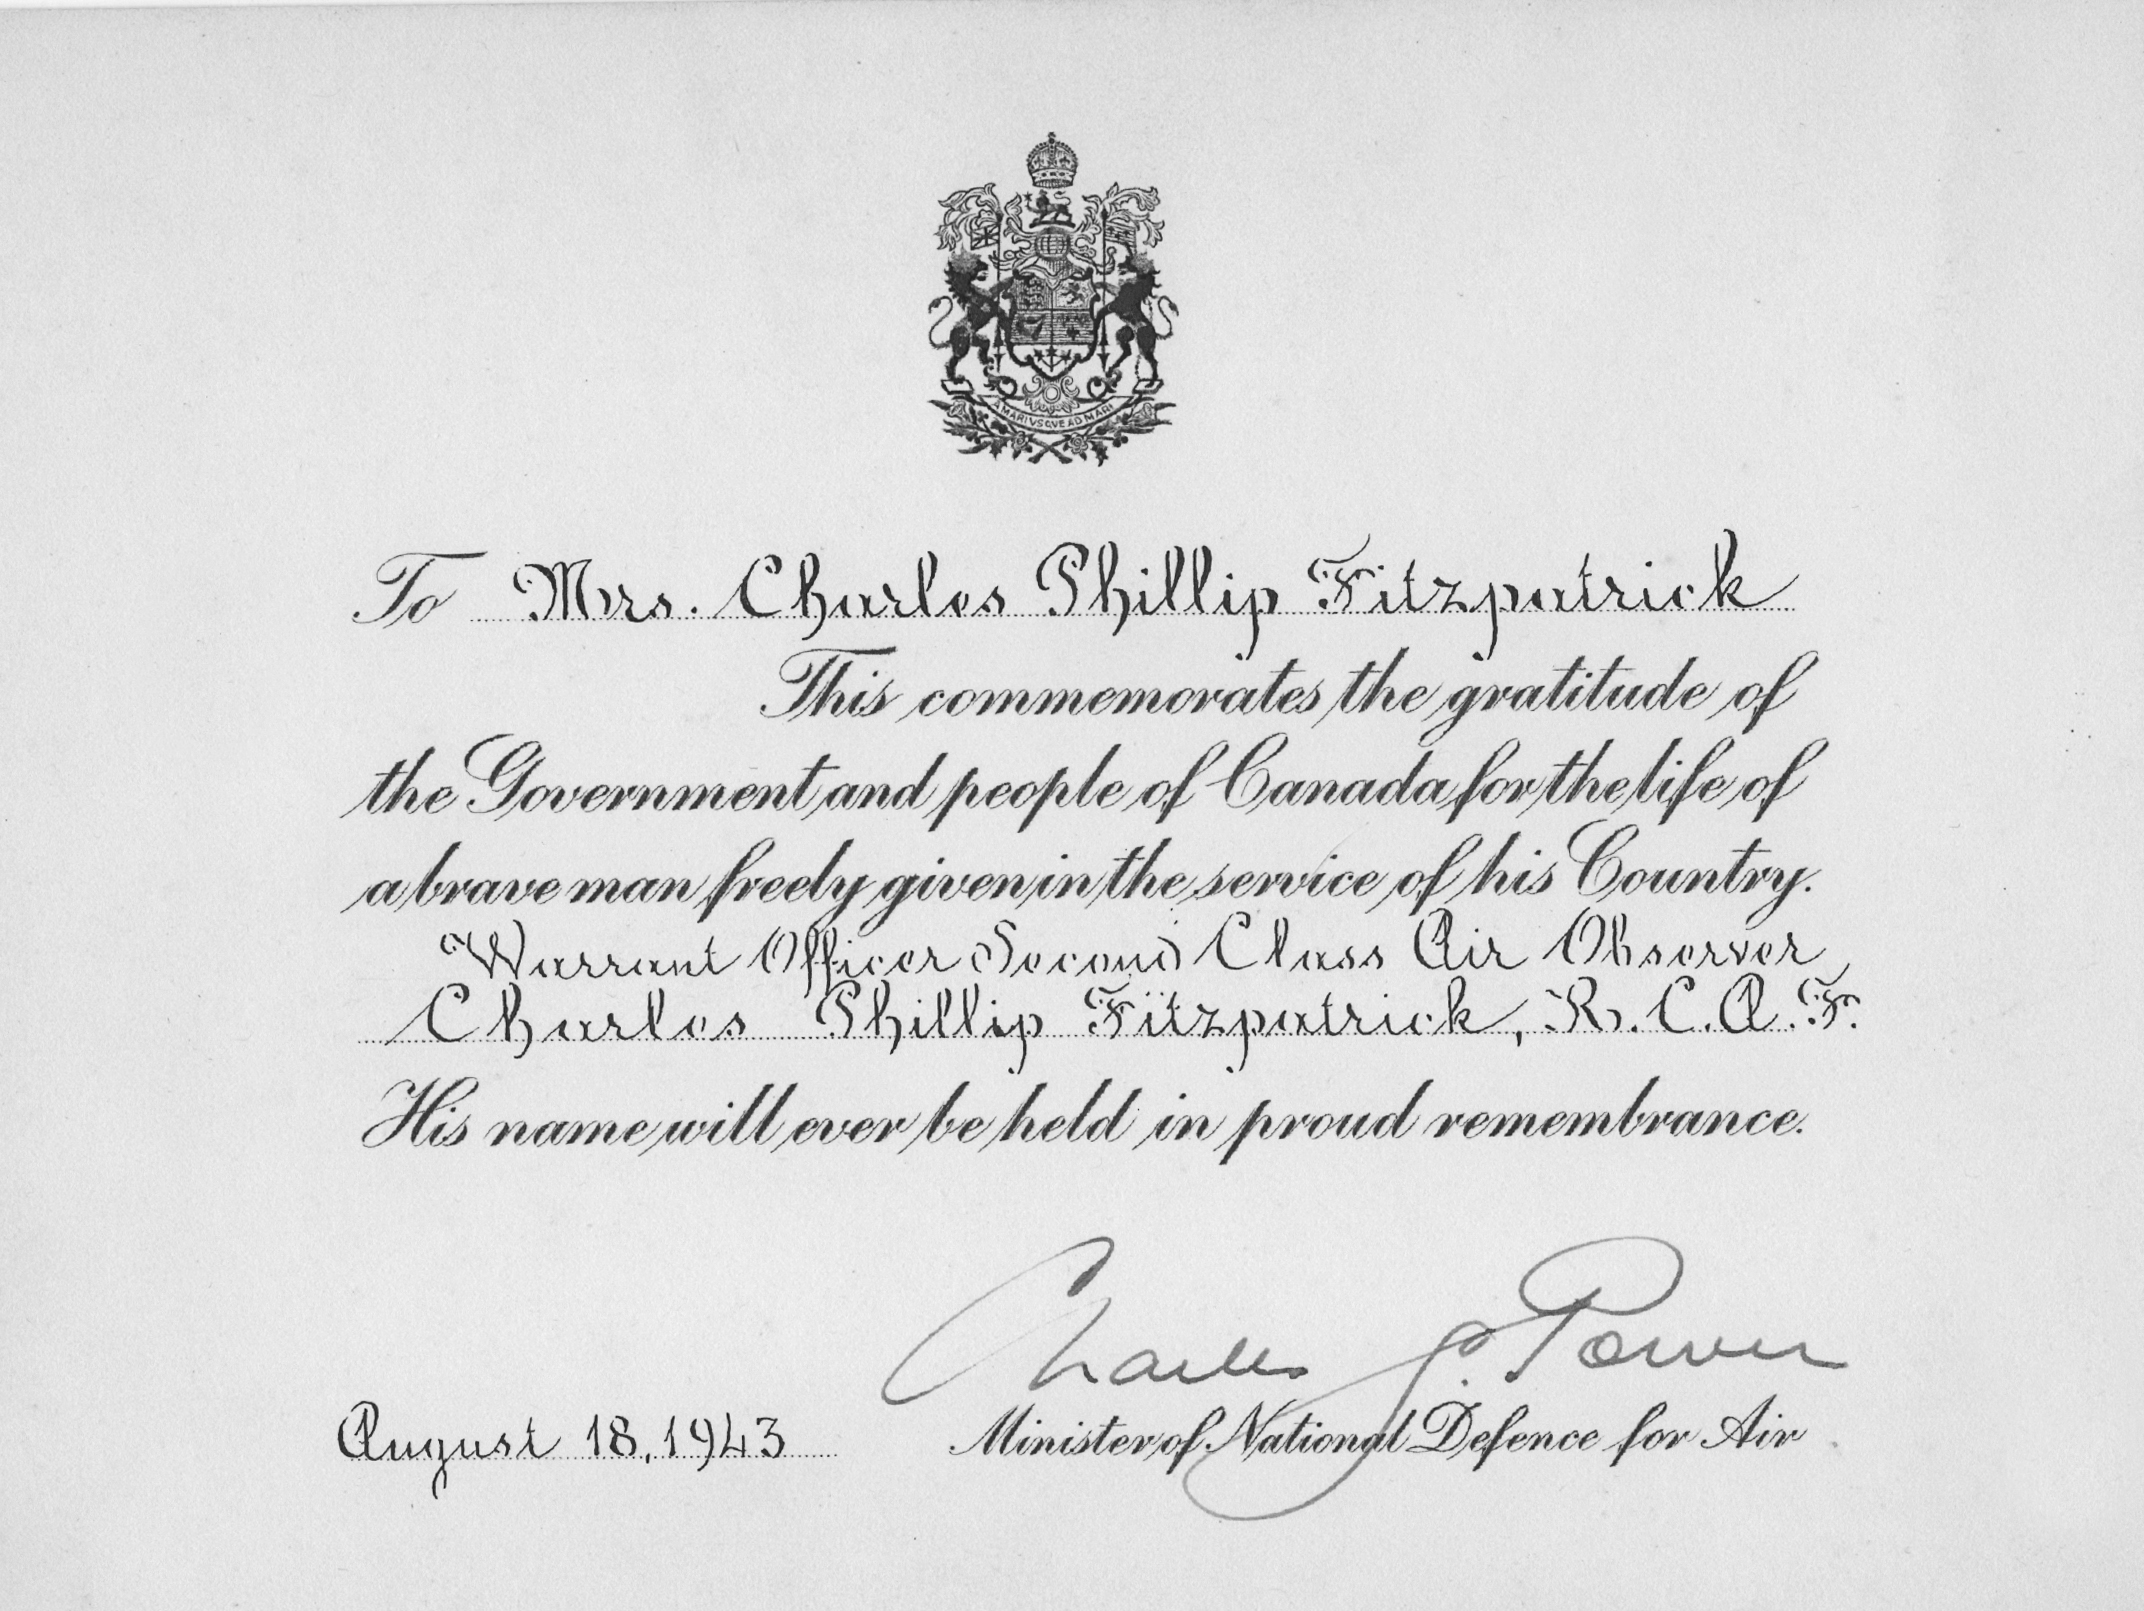 A MARI VSQVE AD MARE
To Mrs. Charles Phillip Fitzpatrick
This commemorates the gratitude of
the Government and people of Canada for the life of
a brave man freely given in the service of his Country.
Warrant Officer Second Class Air Observer
Charles Phillip Fitzpatrick, R. C. A. F.
His name will ever be held in proud remembrance.
Charles G. Power
August 18, 1943 Minister of National Defence for Air